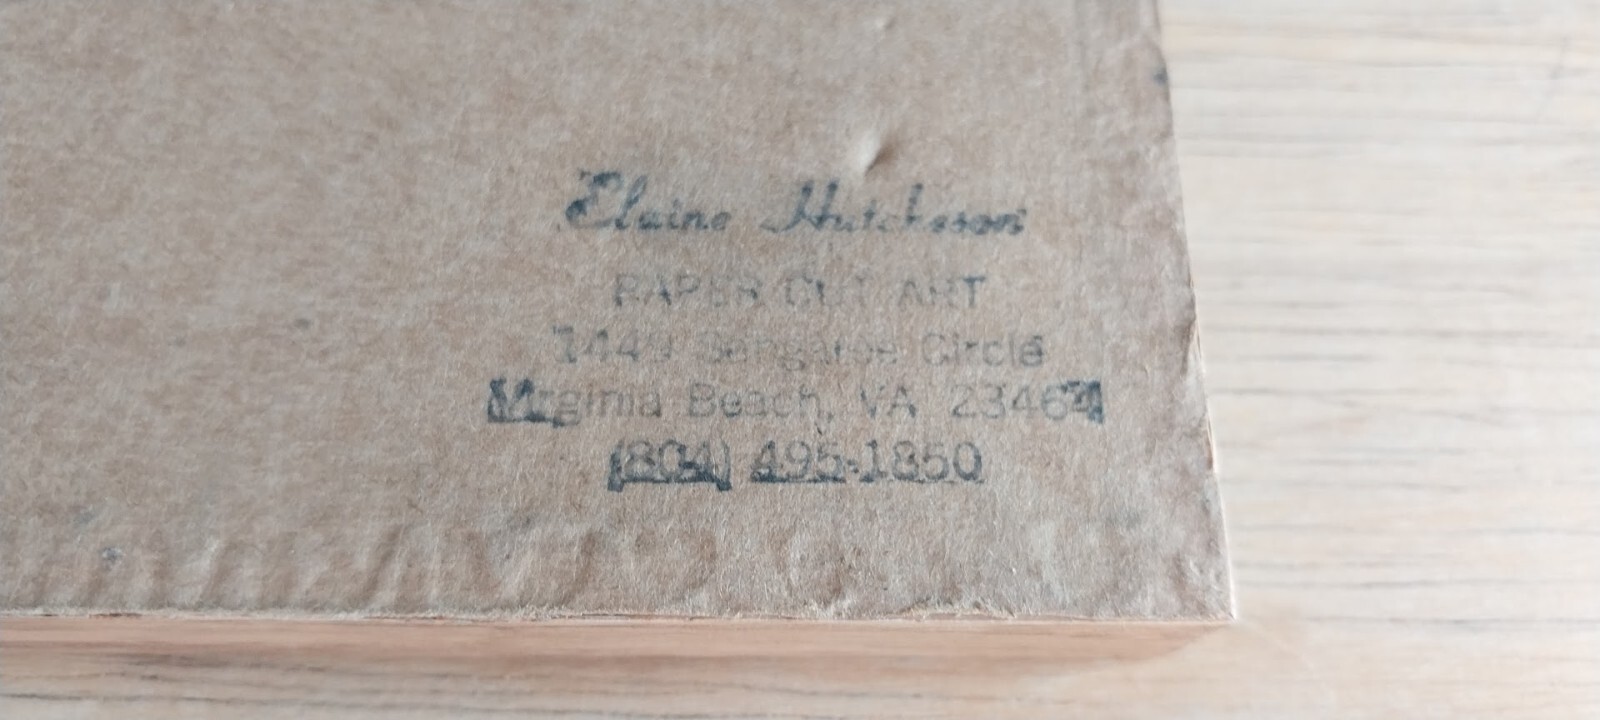 Elaine Hutcheson
PAPER CUT ART
1449 Circle
Virginia Beach, VA 23464
(804) 495-1850